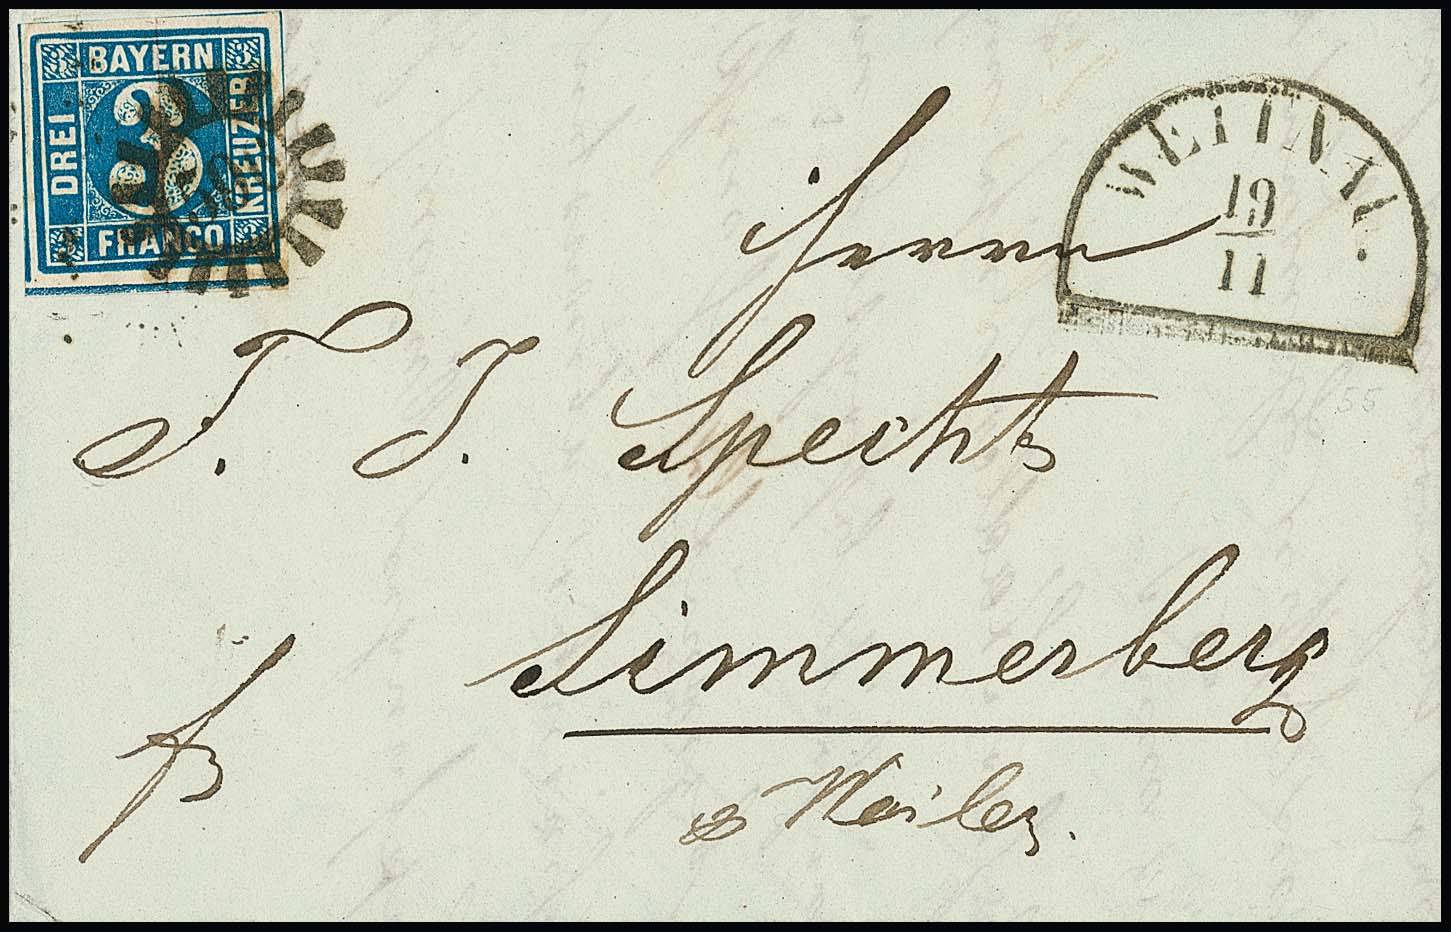 BAYERN
DREI
3
KREUZER
FRANCO
WEITNAU.
19
11
Herrn
T. J. Specht
Simmerberg
Weiler.
55